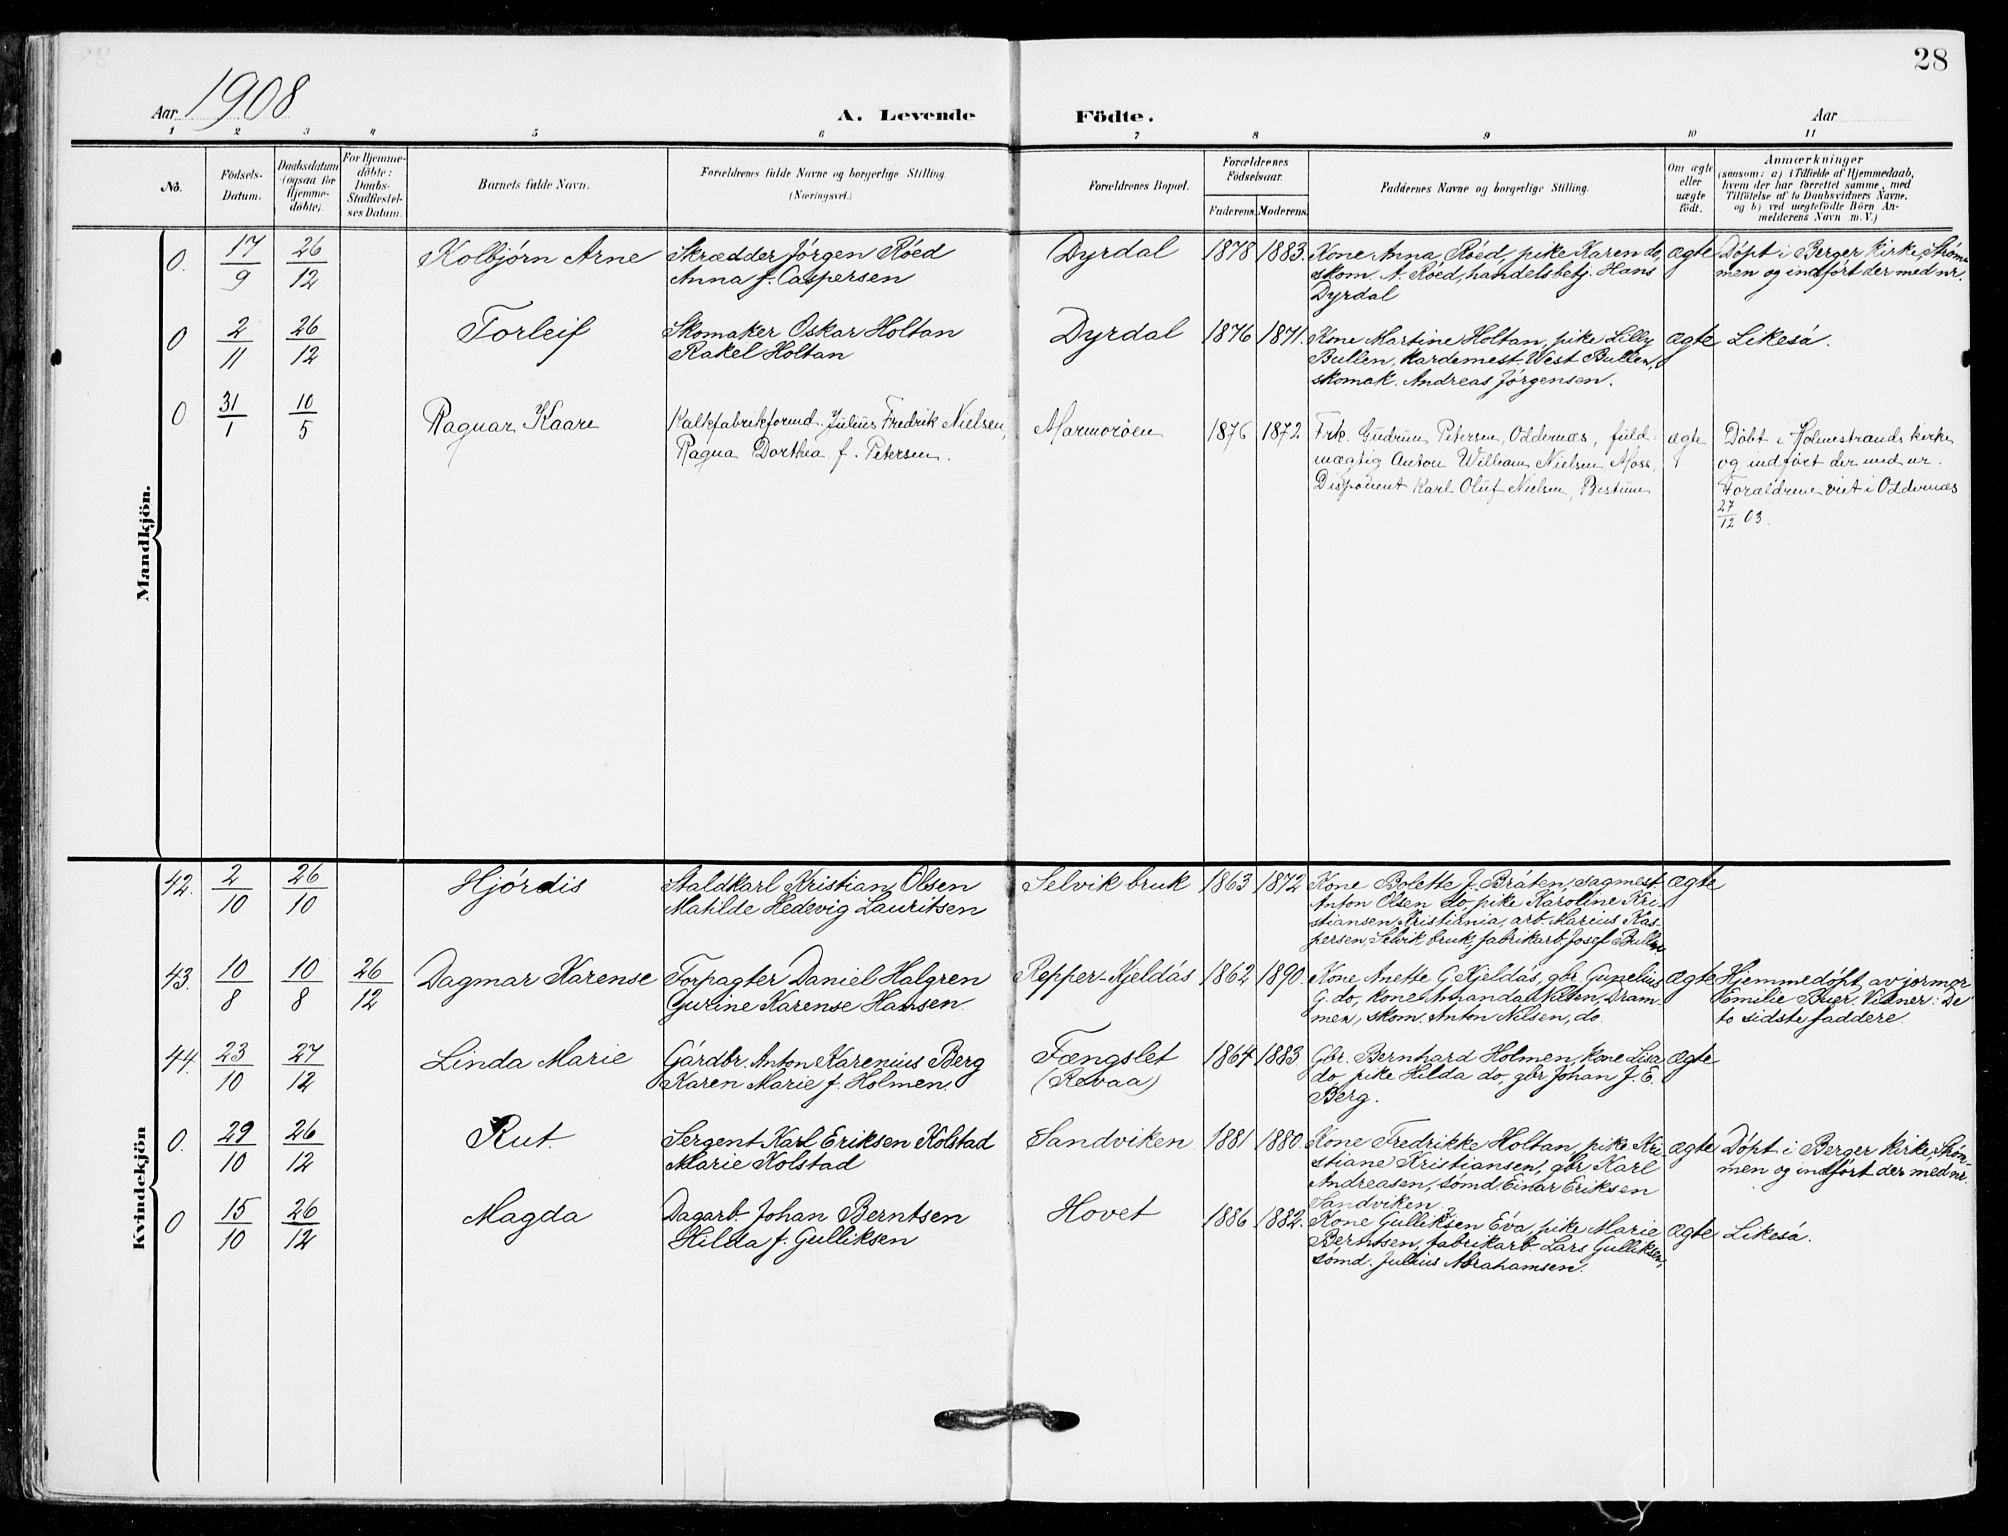 28
Aar 1908
A. Levende Födte.
Aar
1 2 3 4 5 6 7 8 9 10 11
No.
Födsels-Datum.
Daabsdatum (ogsaa for Hjemme-døbte).
For Hjemme-døbte: Daabs-Stadfæstel-ses Datum.
Barnets fulde Navn.
Forældrenes fulde Navne og borgerlige Stilling. (Næringsvei.)
Forældrenes Bopæl.
Forældrenes Födselsaar.
Faderens. Moderens.
Faddernes Navne og borgerlige Stilling.
Om ægte eller uægte født.
Anmærkninger
(saasom: a) i Tilfælde af Hjemmedaab, hvem der har forrettet samme, med Tilføielse af to Daabsvidners Navne, og b) ved uægtefødte Börn An-melderens Navn m. V.)
Mandkjön.
0. 17/9 26/12 Kolbjørn Arne Skrædder Jørgen Røed Dyrdal 1878 1883. Kone Anna Røed, pike Karen do, ægte Døpt i Berger kirke, Strøm-
Anna f. Caspersen skom. A. Roed, handelsbetj. Hans men og indført der med nr.
Dyrdal
0 2/11 26/12 Torleif Skomaker Oskar Holtan Dyrdal 1876 1871. Kone Martine Holtan, pike Lilly ægte Likeså.
Rakel Holtan Bullen, West Bullen,
skomak. Andreas Jørgensen.
0 31/1 10/5 Ragnar Kaare Kalkfabrikformd. Julius Fredrik Nielsen, Marmorøen 1876 1872 Frk. Gudrun Petersen, Oddernæs, fuld- ægte Døbt i Holmestrands kirke
Ragna Dorthea f. Petersen. mægtig Anton William Nielsen, Moss, og indført der med nr.
Disponent Karl Oluf Nielsen, Bestum Forældrene viet i Oddernæs
27/12 03.
Kvindekjön
42. 2/10 26/10 Hjørdis Staldkarl Kristian Olsen Selvik bruk 1863 1872 Kone Bolette J. Bråten, sagmest. ægte
Matilde Hedevig Lauritsen Anton Olsen do, pike Karoline Kri-
stiansen, Kristiania, arb. Marius Kas-
persen, Selvik bruk, fabrikarb. Josef Bullen
43. 10/8 10/8 26/12 Dagmar Karense Forpagter Daniel Halgren Repper-Kjeldås 1862 1890. Kone Anette G. Kjeldås, gbr. Gunelius ægte Hjemmedøpt av jormor
Gurine Karense Hansen. G. do, kone Nilsen, Dram- Emilie Buer. Vidner: De
men, skom. Anton Nilsen, do. to sidste faddere.
44. 23/10 27/12 Linda Marie Gårdbr. Anton Karenius Berg Fængslet 1864 1883 Gbr. Bernhard Holmen, kone Lisa ægte
Karen Marie f. Holmen. (Revaa) do, pike Hilda do, gbr Johan J. E.
Berg.
0. 29/10 26/12 Rut. Sergent Karl Eriksen Kolstad Sandviken 1881 1880. Kone Fredrikke Holtan, pike Kri- ægte Døpt i Berger kirke, Strøm-
Marie Kolstad stiane Kristiansen, gbr Karl men og indført der med nr.
Andreasen, sømd Einar Eriksen
Sandviken
0 15/10 26/12 Magda Dagarb. Johan Berntsen Hovet 1886 1882. Kone Gulliksen Eva, pike Marie ægte Likeså.
Hilda f. Gulliksen Berntsen, fabrikarb. Lars Gulliksen,
sømd. Julius Abrahamsen.